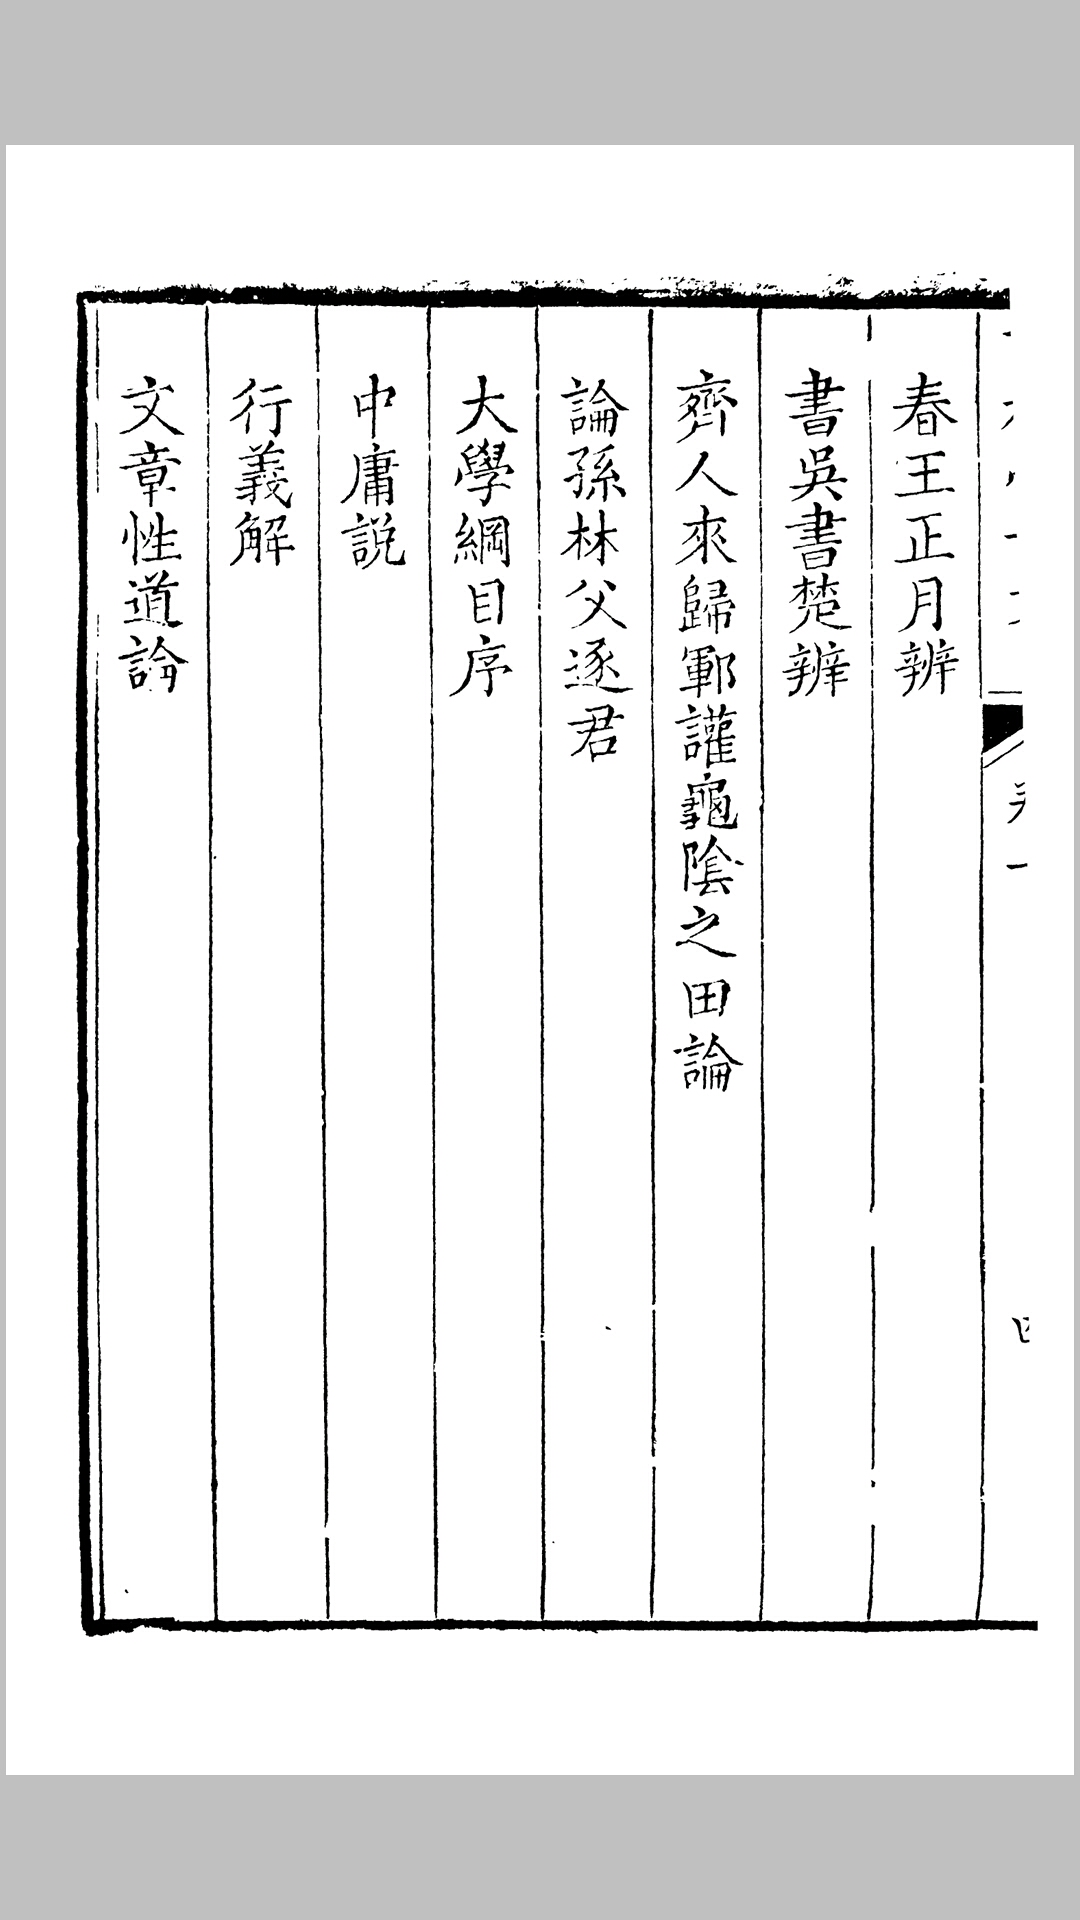 春王正月辨
書吳書楚辨
齊人來歸鄆讙龜陰之田論
論孫林父逐君
大學綱目序
中庸說
行義解
文章性道論